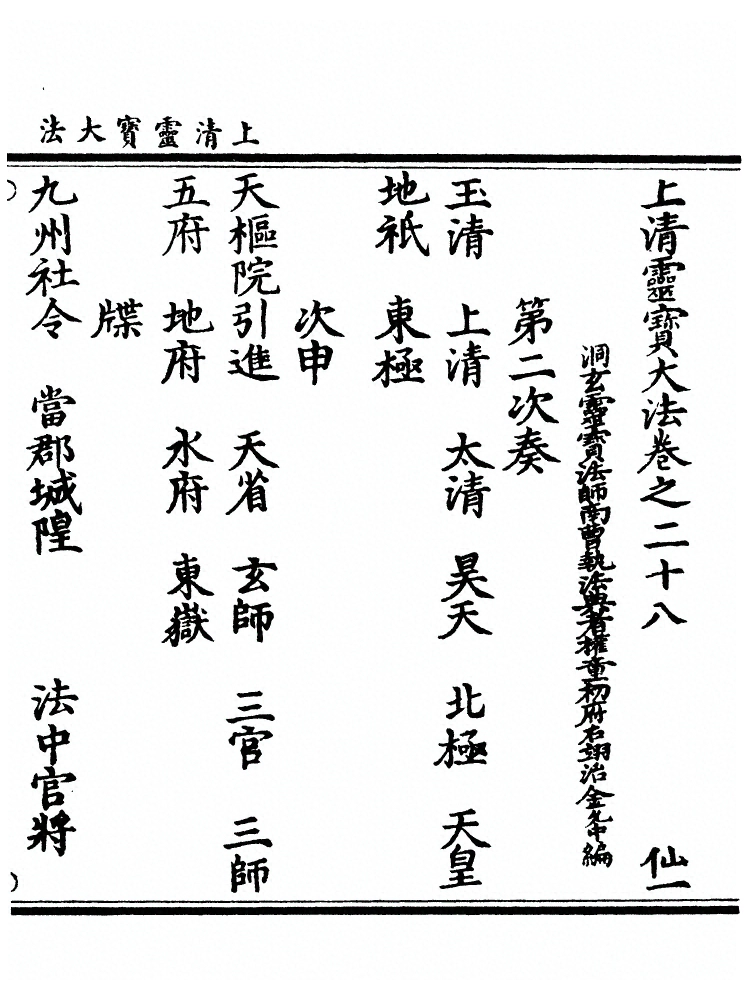 上清靈寶大法
上清靈寶大法卷之二十八 仙一
洞玄靈寶法師南曹執法典者權童初府右翊治金允中編
第二次奏
玉清 上清 太清 昊天 北極 天皇
地祇 東極
次申
天樞院引進 天省 玄師 三官 三師
五府 地府 水府 東嶽
牒
九州社令 當郡城隍 法中官將